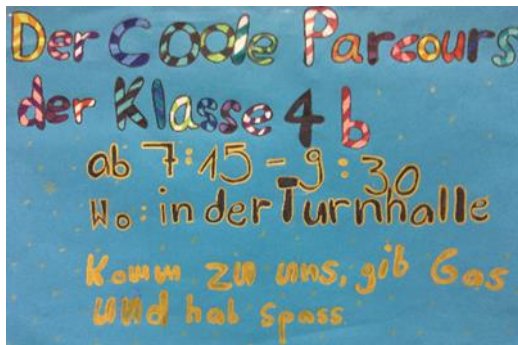 Der Coole Parcours
der Klasse 4b
ab 7:15 - 9:30
Wo: in der Turnhalle
Komm zu uns, gib Gas
und hab spass